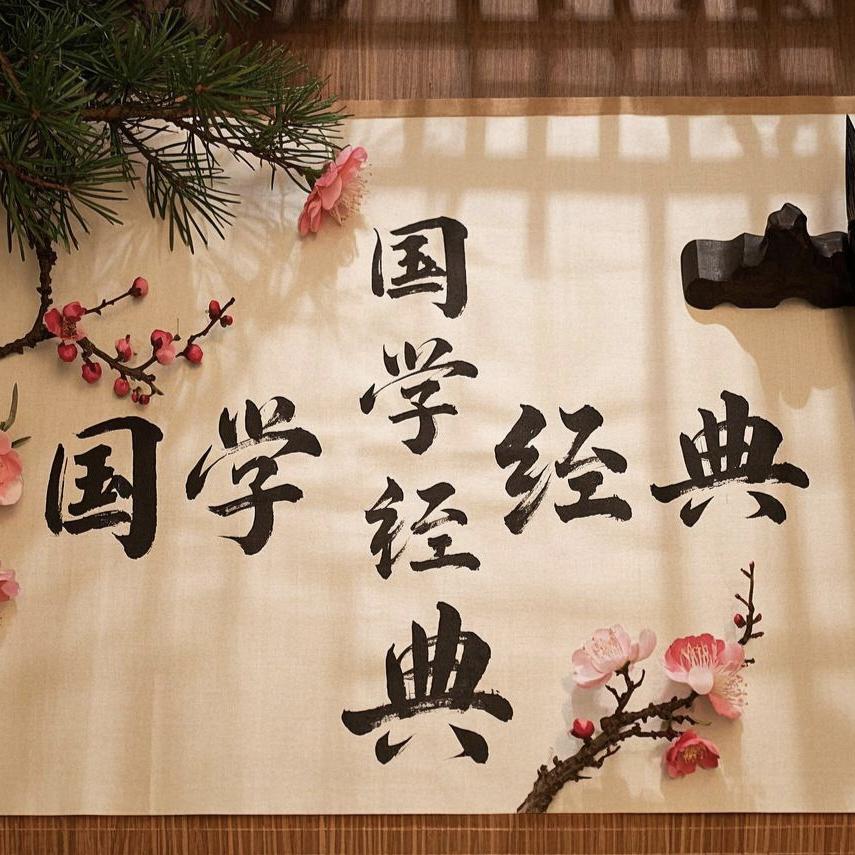 国学经典
国学经典